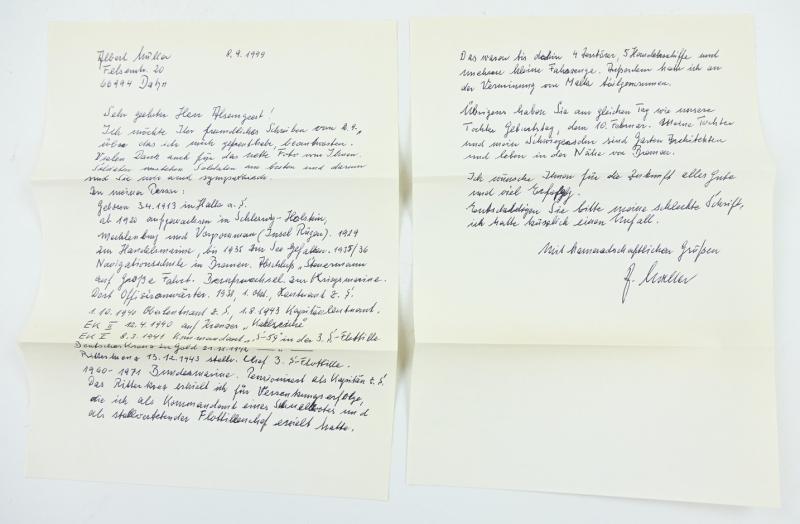 Albert Müller 8.9.1999
Felsenstr. 20
66994 Dahn
Sehr geehrter Herr
Ich möchte Ihr freundliches Schreiben vom
über das ich mich gefreut habe, beantworten.
Vielen Dank auch für das nette Foto von Ihnen.
Soldaten Soldaten am besten und darum
sind Sie mir auch sympathisch.
Zu meiner Person:
Geboren 3.4.1913 in Halle a.S.
ab 1920 aufgewachsen in Schleswig-Holstein,
Mecklenburg und Vorpommern (Insel Rügen). 1929
zur Handelsmarine, bis 1935 zur See gefahren. 1935/36
Navigationsschule in Bremen. Abschluß "Steuermann
auf Große Fahrt. Berufswechsel zur Kriegsmarine.
Dort Offiziersanwärter. 1938, 1. Okt. Leutnant z. S.
1.10.1940 Oberleutnant z. S., 1.8.1943 Kapitänleutnant.
EK II 12.4.1940 auf Kreuzer "Karlsruhe"
EK I 8.3.1941 Kommandant "S-59" in der 3. S-Flottille
Deutsches Kreuz in Gold
Ritterkreuz 13.12.1943 stellv. Chef 3. S-Flottille.
1960-1971 Bundesmarine. Pensioniert als Kapitän z. S.
Das Ritterkreuz erhielt ich für Versenkungserfolge,
die ich als Kommandant eines Schnellbootes und
als stellvertretender Flottillenchef erzielt hatte.
Das waren bis dahin 4 Zerstörer, 5 Handelsschiffe und
mehrere kleine Fahrzeuge. Außerdem habe ich an
der Verminung von Malta teilgenommen.
Übrigens haben Sie am gleichen Tag wie unsere
Tochter Geburtstag, dem 10. Februar. Meine Tochter
und mein Schwiegersohn sind Garten Architekten
und leben in der Nähe von Bremen.
Ich wünsche Ihnen für die Zukunft alles Gute
und viel Erfolg.
Entschuldigen Sie bitte meine schlechte Schrift,
ich hatte kürzlich einen Unfall.
Mit kameradschaftlichen Grüßen
A. Müller